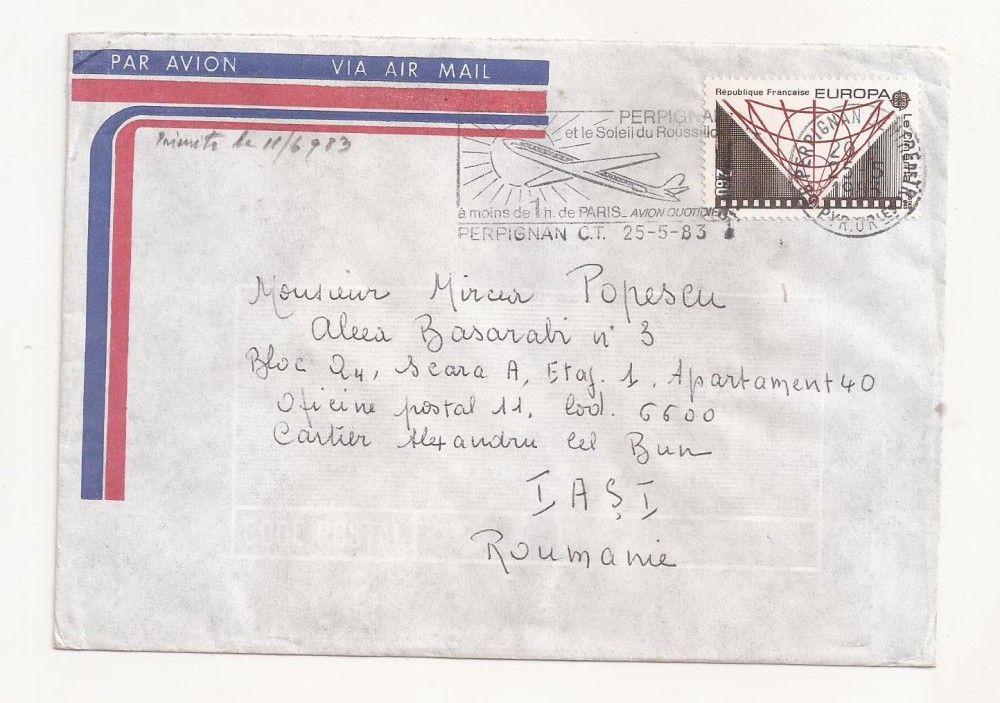 PAR AVION VIA AIR MAIL
Primită la 11/6 983
PERPIGNAN
et le Soleil du Roussillo
à moins de 1 h. de PARIS_ AVION QUOTIDIE
PERPIGNAN C.T. 25-5-83
République Française EUROPA
Le cinéma
2,60
PERPIGNAN
PYR. OR
Monsieur Mircea Popescu
Aleea Basarabi n° 3
Bloc Q4, Scara A, Etaj. 1, Apartament 40
Oficine postal 11, Cod. 6600
Cartier Alexandru cel Bun
IAŞI
Roumanie
CODE POSTAL